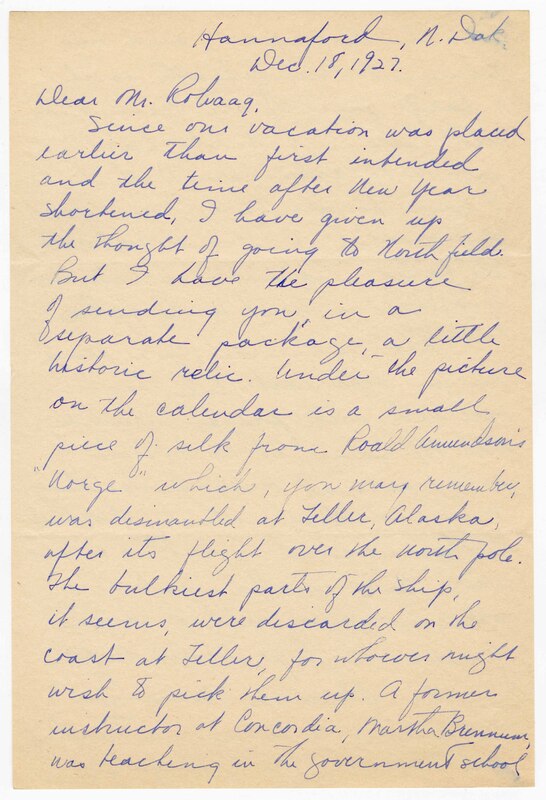 Hannaford, N. Dak.
Dec. 18, 1927.
Dear Mr. Rolvaag,
Since our vacation was placed
earlier than first intended
and the time after New Year
shortened, I have given up
the thought of going to Northfield.
But I have the pleasure
of sending you, in a
separate package, a little
historic relic. Under the picture
on the calendar is a small
piece of silk from Roald Amundson's
"Norge" which, you may remember,
was dismantled at Teller, Alaska,
after its flight over the north pole.
The bulkiest parts of the ship,
it seems, were discarded on the
coast at Teller, for whoever might
wish to pick them up. A former
instructor at Concordia, Martha Brennum,
was teaching in the government school